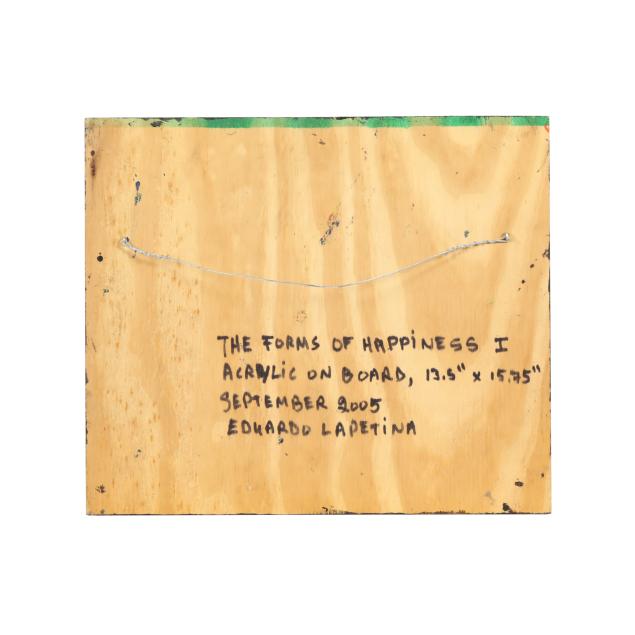 THE FORMS OF HAPPINESS I
ACRYLIC ON BOARD, 13.5" x 15.75"
SEPTEMBER 2005
EDUARDO LAPETINA